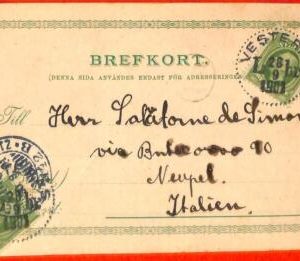 BREFKORT.
(DENNA SIDA ANVÄNDES ENDAST FÖR ADRESSERINGEN
VESTER
28
9
1901
Till
Herr Salatorne de Simon
via 90
Neapel.
Italien.